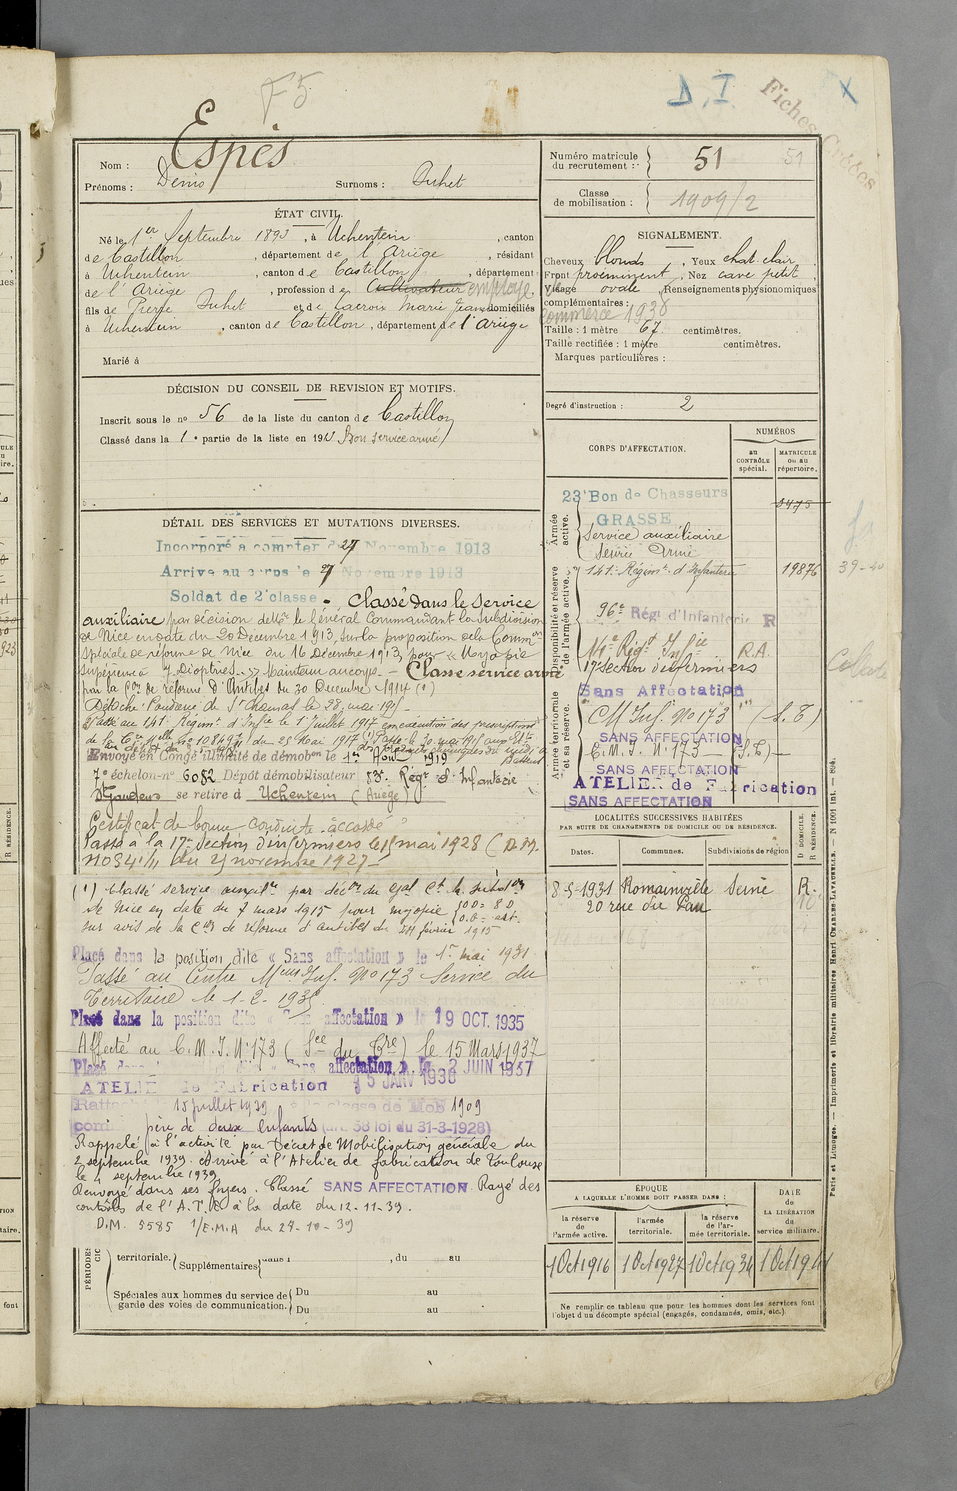 F5
D. I
X
Fiches Croisées
Espès
Nom :
Prénoms : Denis Surnoms : Auhet
Numéro matricule du recrutement : 51 51
Classe de mobilisation : 1909/2
ÉTAT CIVIL.
Né le 1er Septembre 1893, à Uchentein, canton
de Castillon, département de l'Ariège, résidant
à Uchentein, canton de Castillon, département
de l'Ariège, profession de Cultivateur employé
commerce 1938
fils de Pierre Auhet et de Lacroix Marie Jeanne domiciliés
à Uchentein, canton de Castillon, département de l'Ariège
Marié à
SIGNALEMENT.
Cheveux blonds, Yeux chat. clair
Front proéminent, Nez cave petit,
Visage ovale, Renseignements physionomiques
complémentaires :
Taille : 1 mètre 67 centimètres.
Taille rectifiée : 1 mètre centimètres.
Marques particulières :
Degré d'instruction : 2
DÉCISION DU CONSEIL DE REVISION ET MOTIFS.
Inscrit sous le no 56 de la liste du canton de Castillon
Classé dans la 1e partie de la liste en 1913 Bon service armé
DÉTAIL DES SERVICES ET MUTATIONS DIVERSES.
Incorporé à compter du 27 Novembre 1913
Arrivé au corps le 27 Novembre 1913
Soldat de 2e classe. Classé dans le service
auxiliaire par décision de Mr le Général Commandant la Subdivision
de Nice en date du 20 Décembre 1913, sur la proposition de la Common
spéciale de réforme de Nice du 16 Décembre 1913, pour « Myopie
supérieure à 7 Dioptries. » Maintenu au corps. - Classé service armé
par la Con de réforme d'Antibes du 30 Décembre 1914 (1)
Détaché Poudrerie de St Chamas le 28 mai 191
Passé au 141e Régimt d'Infie le 1er Juillet 1917 en exécution des prescriptions
du 25 Mai 1917
Envoyé en Congé illimité de démobon le 1er Aout 1919
7e échelon no 6082 Dépôt démobilisateur 83e Régt d'Infanterie
St Gaudens se retire à Uchentein (Ariège)
Certificat de bonne conduite "accordé"
Passé à la 17e Section d'infirmiers le 1er mai 1928 (D.M.
no 841/1 du 25 novembre 1927
(1) Classé service auxilre par décon du Gal Ct la subdon
de Nice en date du 7 mars 1915 pour myopie OD = 8 D
sur avis de la Con de réforme d'Antibes du 24 février 1915
Placé dans la position dite « Sans affectation » le 1er mai 1931
Passé au Centre Meur Inf. No 173 Service du
Territoire le 1-2-193
Placé dans la position dite « Sans affectation » le 19 OCT. 1935
Affecté au C.M.I. No 173 (Sce du Tre) le 15 Mars 1937
Placé dans la position dite « Sans affectation » le 2 JUIN 1937
ATELIER de Fabrication 5 JANV 1938
Rattaché 15 juillet 1939 à la classe de Mob 1909
comme père de deux enfants (art. 58 loi du 31-3-1928)
Rappelé à l'activité par Décret de Mobilisation générale du
2 septembre 1939. Arrivé à l'Atelier de fabrication de Toulouse
le 4 septembre 1939
Renvoyé dans ses foyers. Classé SANS AFFECTATION. Rayé des
contrôles de l'A.T.E à la date du 12-11-39.
D.M. 5585 1/E.M.A du 24-10-39
CORPS D'AFFECTATION.
NUMÉROS
au CONTRÔLE spécial.
MATRICULE ou au répertoire.
Armée active.
23e Bon de Chasseurs 3475
GRASSE
Service auxiliaire
Service Armé
Disponibilité et réserve de l'armée active.
141e Régimt d'Infanterie 19876
39-40
96e Régt d'Infanterie R
14e Régt Infie R.A.
17e section d'infirmiers
Sans Affectation
Armée territoriale et sa réserve.
CM Inf. No 173 (S.T)
SANS AFFECTATION
C.M.I. No 173 (S.T)
SANS AFFECTATION
ATELIER de Fabrication
SANS AFFECTATION
LOCALITÉS SUCCESSIVES HABITÉES
PAR SUITE DE CHANGEMENTS DE DOMICILE OU DE RÉSIDENCE.
Dates. Communes. Subdivisions de région D DOMICILE. R RÉSIDENCE.
8-5-1931 Romainville Seine R.
20 rue du Parc
ÉPOQUE
A LAQUELLE L'HOMME DOIT PASSER DANS :
la réserve de l'armée active.
l'armée territoriale.
la réserve de l'armée territoriale.
DATE de LA LIBÉRATION du service militaire.
1 Oct 1916 1 Oct 1927 1 Oct 1934 1 Oct 1941
Ne remplir ce tableau que pour les hommes dont les services font
l'objet d'un décompte spécial (engagés, condamnés, omis, etc.)
PÉRIODES
territoriale. Supplémentaires dans l , du au
Spéciales aux hommes du service de garde des voies de communication. Du au
Du au
Paris et Limoges. — Imprimerie et librairie militaires Henri CHARLES-LAVAUZELLE. — N 1001 int. — 804.